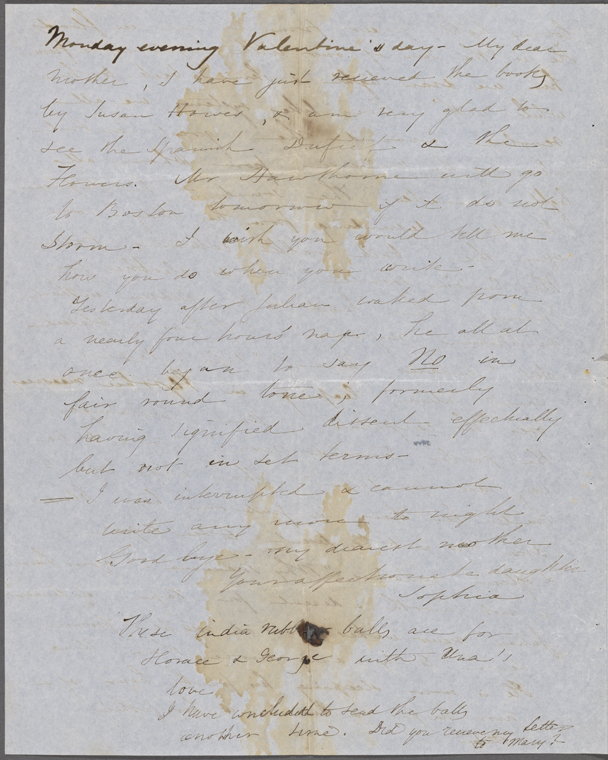 Monday evening Valentine's day - My dear
Mother, I have just received the books
by Susan Howes, & am very glad to
see the Spanish & the
Flowers. Mr Hawthorne will go
to Boston tomorrow if it do not
storm - I wish you would tell me
how you do when you write -
Yesterday after Julian waked from
a nearly four hours' nap, he all at
once began to say No in
fair round tone, formerly
having signified dissent effectually
but not in set terms -
= I was interrupted & cannot
write any more to night
Good bye - my dearest mother
Your affectionate daughter
Sophia
These india rubber balls are for
Horace & George with Una's
love
I have concluded to send the balls
another time. Did you receive my letter
to Mary?